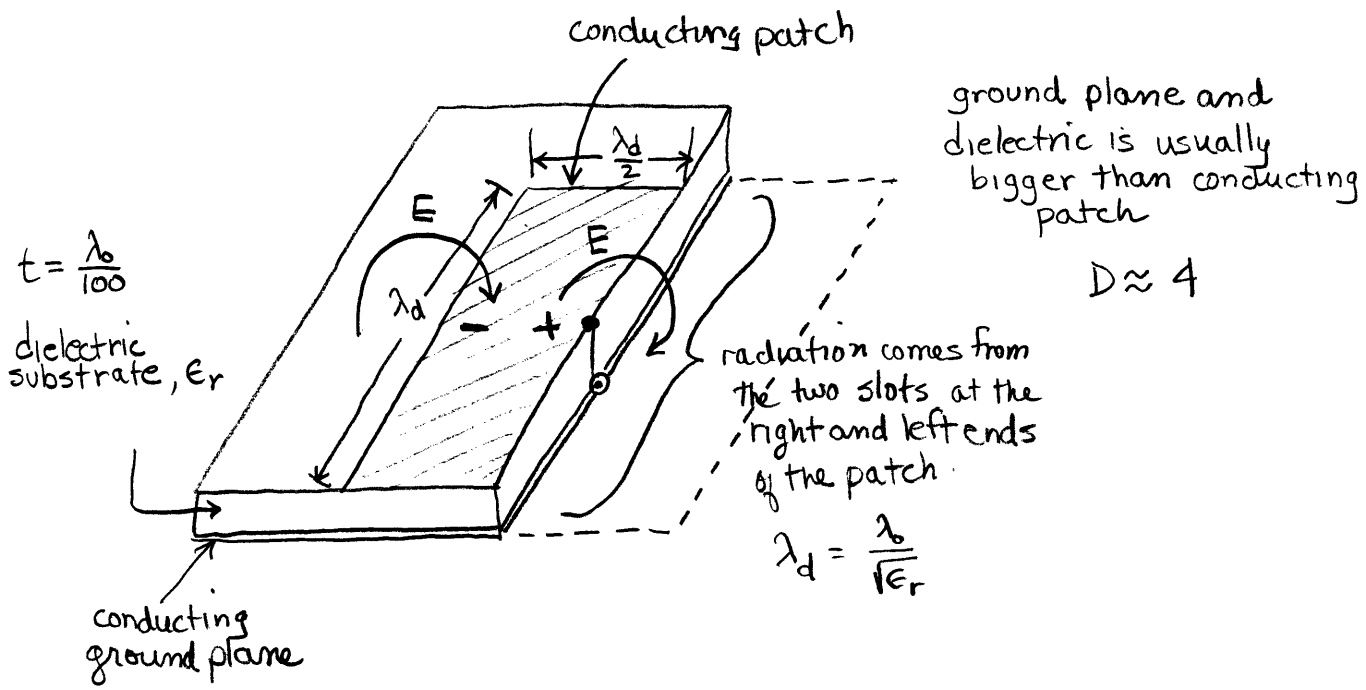 conducting patch
ground plane and
dielectric is usually
bigger than conducting
patch
D ≈ 4
λd/2
E
E
t = λ₀/100
λd
- +
dielectric
substrate, εr
radiation comes from
the two slots at the
right and left ends
of the patch.
λd = λ₀/√εr
conducting
ground plane